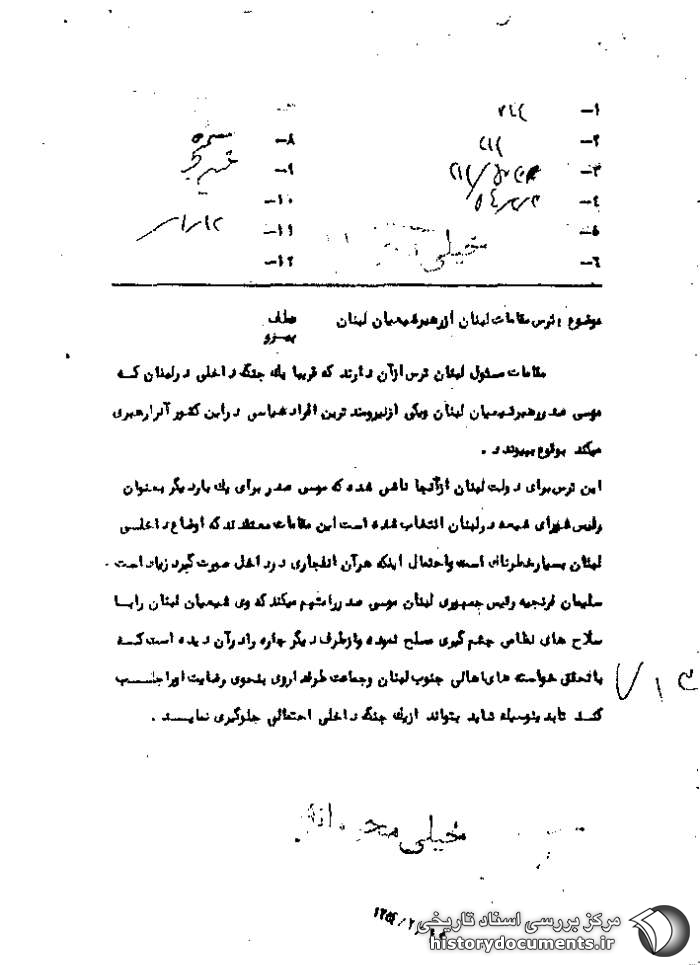 ۱-
۲-
۳-
۴-
۵-
۶-
خیلی
۸-
۹-
۱۰-
۱۱-
۱۲-
موضوع : ترس مقامات لبنان از رهبر شیعیان لبنان
عطف
پیرو
مقامات مسئول لبنان ترس از آن دارند که قریبا یک جنگ داخلی در لبنان که
موسی صدر رهبر شیعیان لبنان ویکی از نیرومند ترین افراد سیاسی در این کشور آنرا رهبری
میکند بوقوع بپیوندد .
این ترس برای دولت لبنان از آنجا ناشی شده که موسی صدر برای یک بار دیگر بعنوان
رئیس شورای شیعه در لبنان انتخاب شده است این مقامات معتقدند که اوضاع داخلی
لبنان بسیار خطرناک است واحتمال اینکه هر آن انفجاری در داخل صورت گیرد زیاد است .
سلیمان فرنجیه رئیس جمهوری لبنان موسی صدر را متهم میکند که وی شیعیان لبنان را با
سلاح های نظامی چشم گیری مسلح نموده واز طرف دیگر چاره را در آن دیده است که
با تحقق خواسته های اهالی جنوب لبنان وجماعت طرفدار وی بنحوی رضایت اورا جلب
کند تا بدینوسیله شاید بتواند از یک جنگ داخلی احتمالی جلوگیری نماید .
۷۱۳
خیلی محرمانه
مرکز بررسی اسناد تاریخی
historydocuments.ir